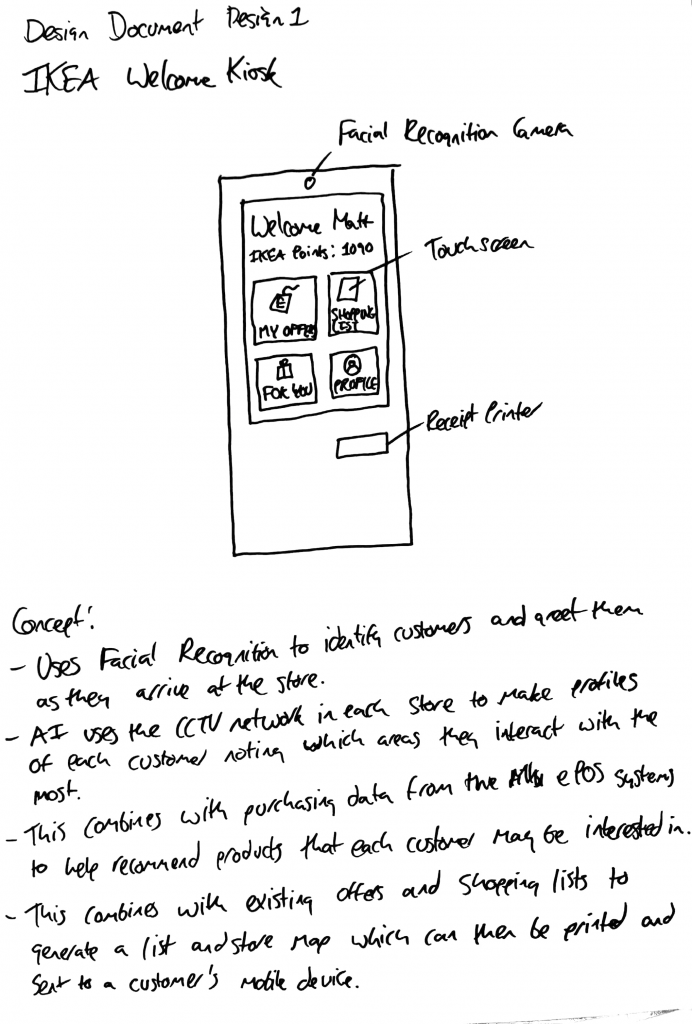 Design Document Design 1
IKEA Welcome Kiosk
Facial Recognition Camera
Welcome Matt
IKEA Points: 1090
Touchscreen
MY OFFERS
SHOPPING
LIST
FOR YOU
PROFILE
Receipt Printer
Concept:
- Uses Facial Recognition to identify customers and greet them
as they arrive at the store.
- AI uses the CCTV network in each store to make profiles
of each customer noting which areas they interact with the
most.
- This combines with purchasing data from the ePOS systems
to help recommend products that each customer may be interested in.
- This combines with existing offers and shopping lists to
generate a list and store map which can then be printed and
sent to a customer's mobile device.